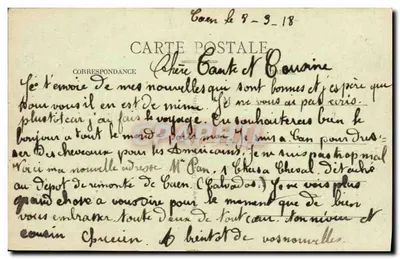 Caen le 8-9-18
CARTE POSTALE
CORRESPONDANCE
Chère Tante et Cousine
Je t'envoie de mes nouvelles qui sont bonnes et j'espère que
pour vous il en est de même. Je ne vous ai pas écris
plustôt car j'ay fais le voyage. Tu souhaiteras bien le
bonjour a tout le monde pour moi je suis a Caen pour dres-
ser Des chevaux pour les Américains, je ne suis pas trop mal
Voici ma nouvelle adresse Mr Pan 1 Chass a Cheval détaché
au depot de remonte de Caen (Calvados) Je ne vois plus
grand chose a vous dire pour le moment que de bien
vous embrasser toute deux de tout cœur. ton neveu et
cousin
a bientot de vos nouvelles